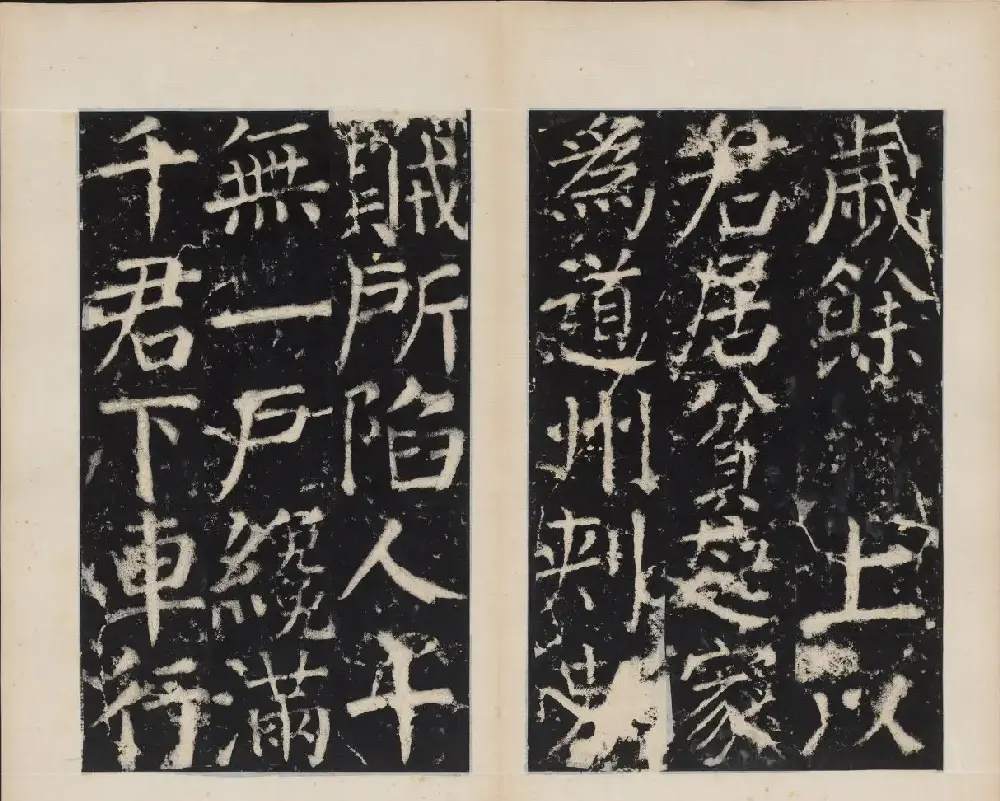 歲餘上以
君居貧起家
爲道州刺
賊所陷人十
無一戶纔滿
千君下車行